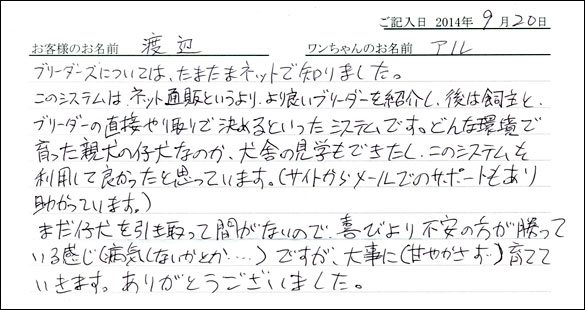 ご記入日 2014年 9月20日
お客様のお名前 渡辺 ワンちゃんのお名前 アル
ブリーダーズについては、たまたまネットで知りました。
このシステムは、ネット通販というより、より良いブリーダーを紹介し、後は飼主と、
ブリーダーの直接やり取りで決めるといったシステムです。どんな環境で
育った親犬の仔犬なのか、犬舎の見学もできたし、このシステムを
利用して良かったと思っています。(サイトからメールでのサポートもあり
助かっています。)
まだ仔犬を引き取って間がないので、喜びより不安の方が勝って
いる感じ(病気しないかとか…)ですが、大事に(甘やかさず…)育てて
いきます。ありがとうございました。